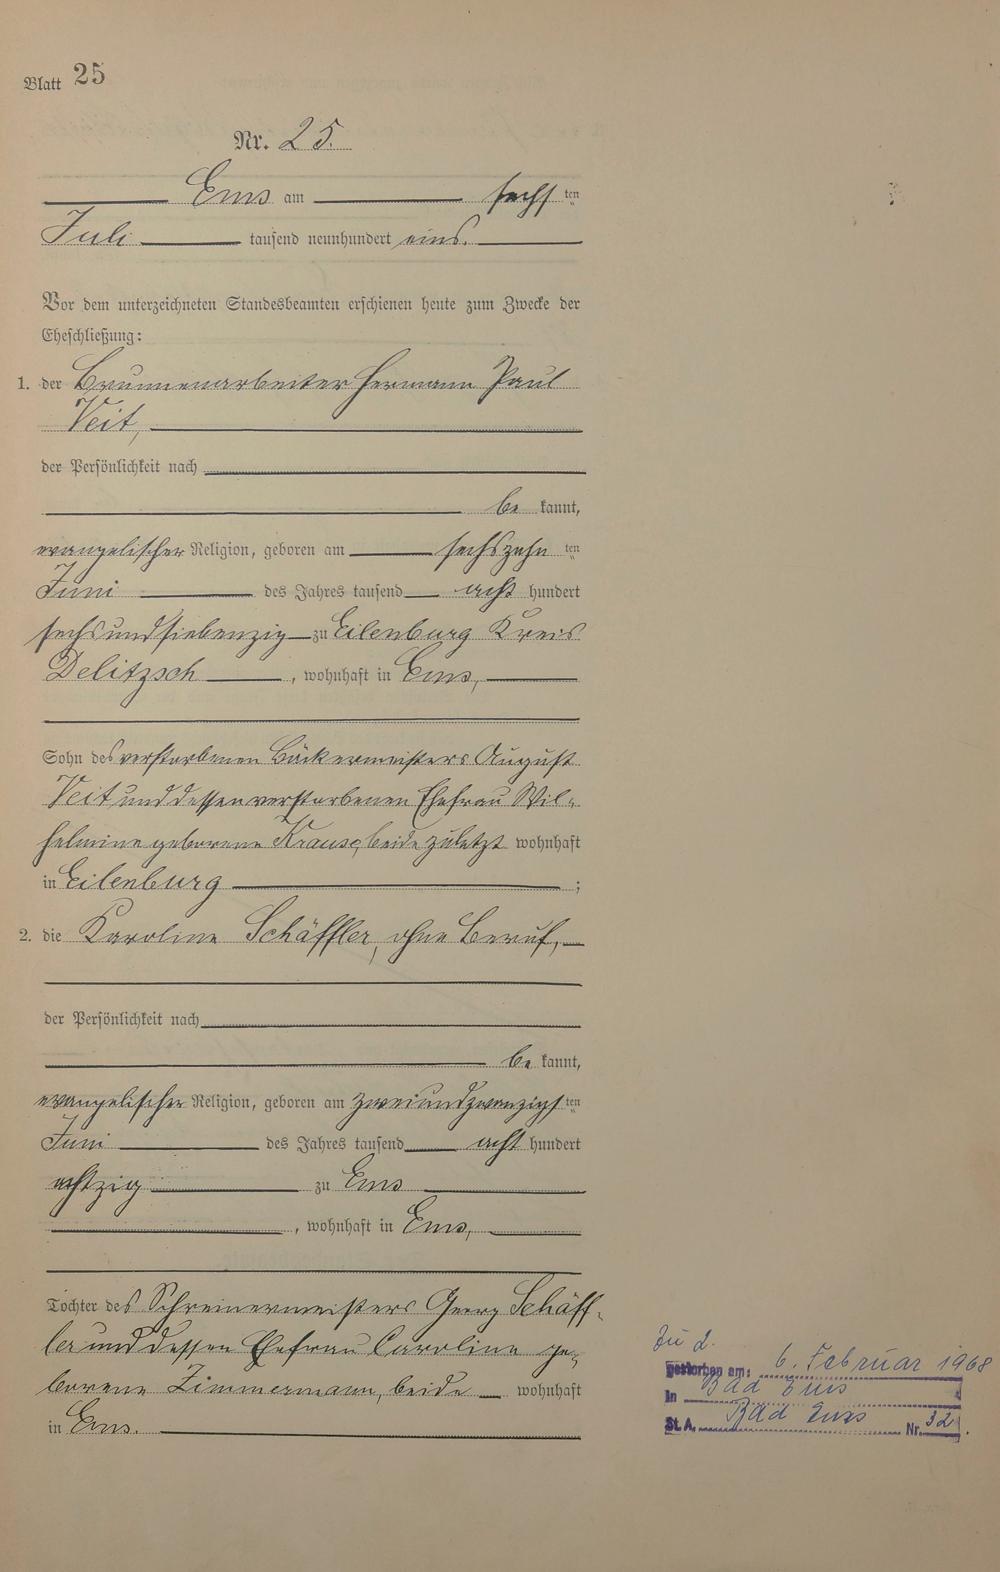 Blatt 25
Nr. 25.
Ems am sechsten
Juli tausend neunhundert eins.
Vor dem unterzeichneten Standesbeamten erschienen heute zum Zwecke der
Eheschließung:
1. der Brunnenarbeiter Hermann Paul
Veit,
der Persönlichkeit nach
be kannt,
evangelischer Religion, geboren am sechszehnten
Juni des Jahres tausend acht hundert
sechsundsiebenzig zu Eilenburg Kreis
Delitzsch, wohnhaft in Ems,
Sohn des verstorbenen Bäckermeisters August
Veit und dessen verstorbenen Ehefrau Wil-
helmine geborene Krause, beide zuletzt wohnhaft
in Eilenburg ;
2. die Karoline Schäffler, ohne Beruf,
der Persönlichkeit nach
be kannt,
evangelischer Religion, geboren am zweiundzwanzigsten
Juni des Jahres tausend acht hundert
achtzig zu Ems
, wohnhaft in Ems,
Tochter des Schreinermeisters Georg Schäff-
ler und dessen Ehefrau Caroline ge-
borene Zimmermann, beide wohnhaft
in Ems.
Zu 2.
gestorben am: 6. Februar 1968
In Bad Ems
St. A. Bad Ems Nr. 32.